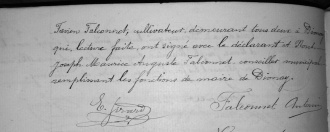 Falconnet, cultivateur, demeurant tous deux à Dionay
qui, lecture faite, ont signé avec le déclarant et Nous
Joseph Maurice Auguste Falconnet conseiller municipal
remplissant les fonctions de maire de Dionay.
E. Girard Falconnet